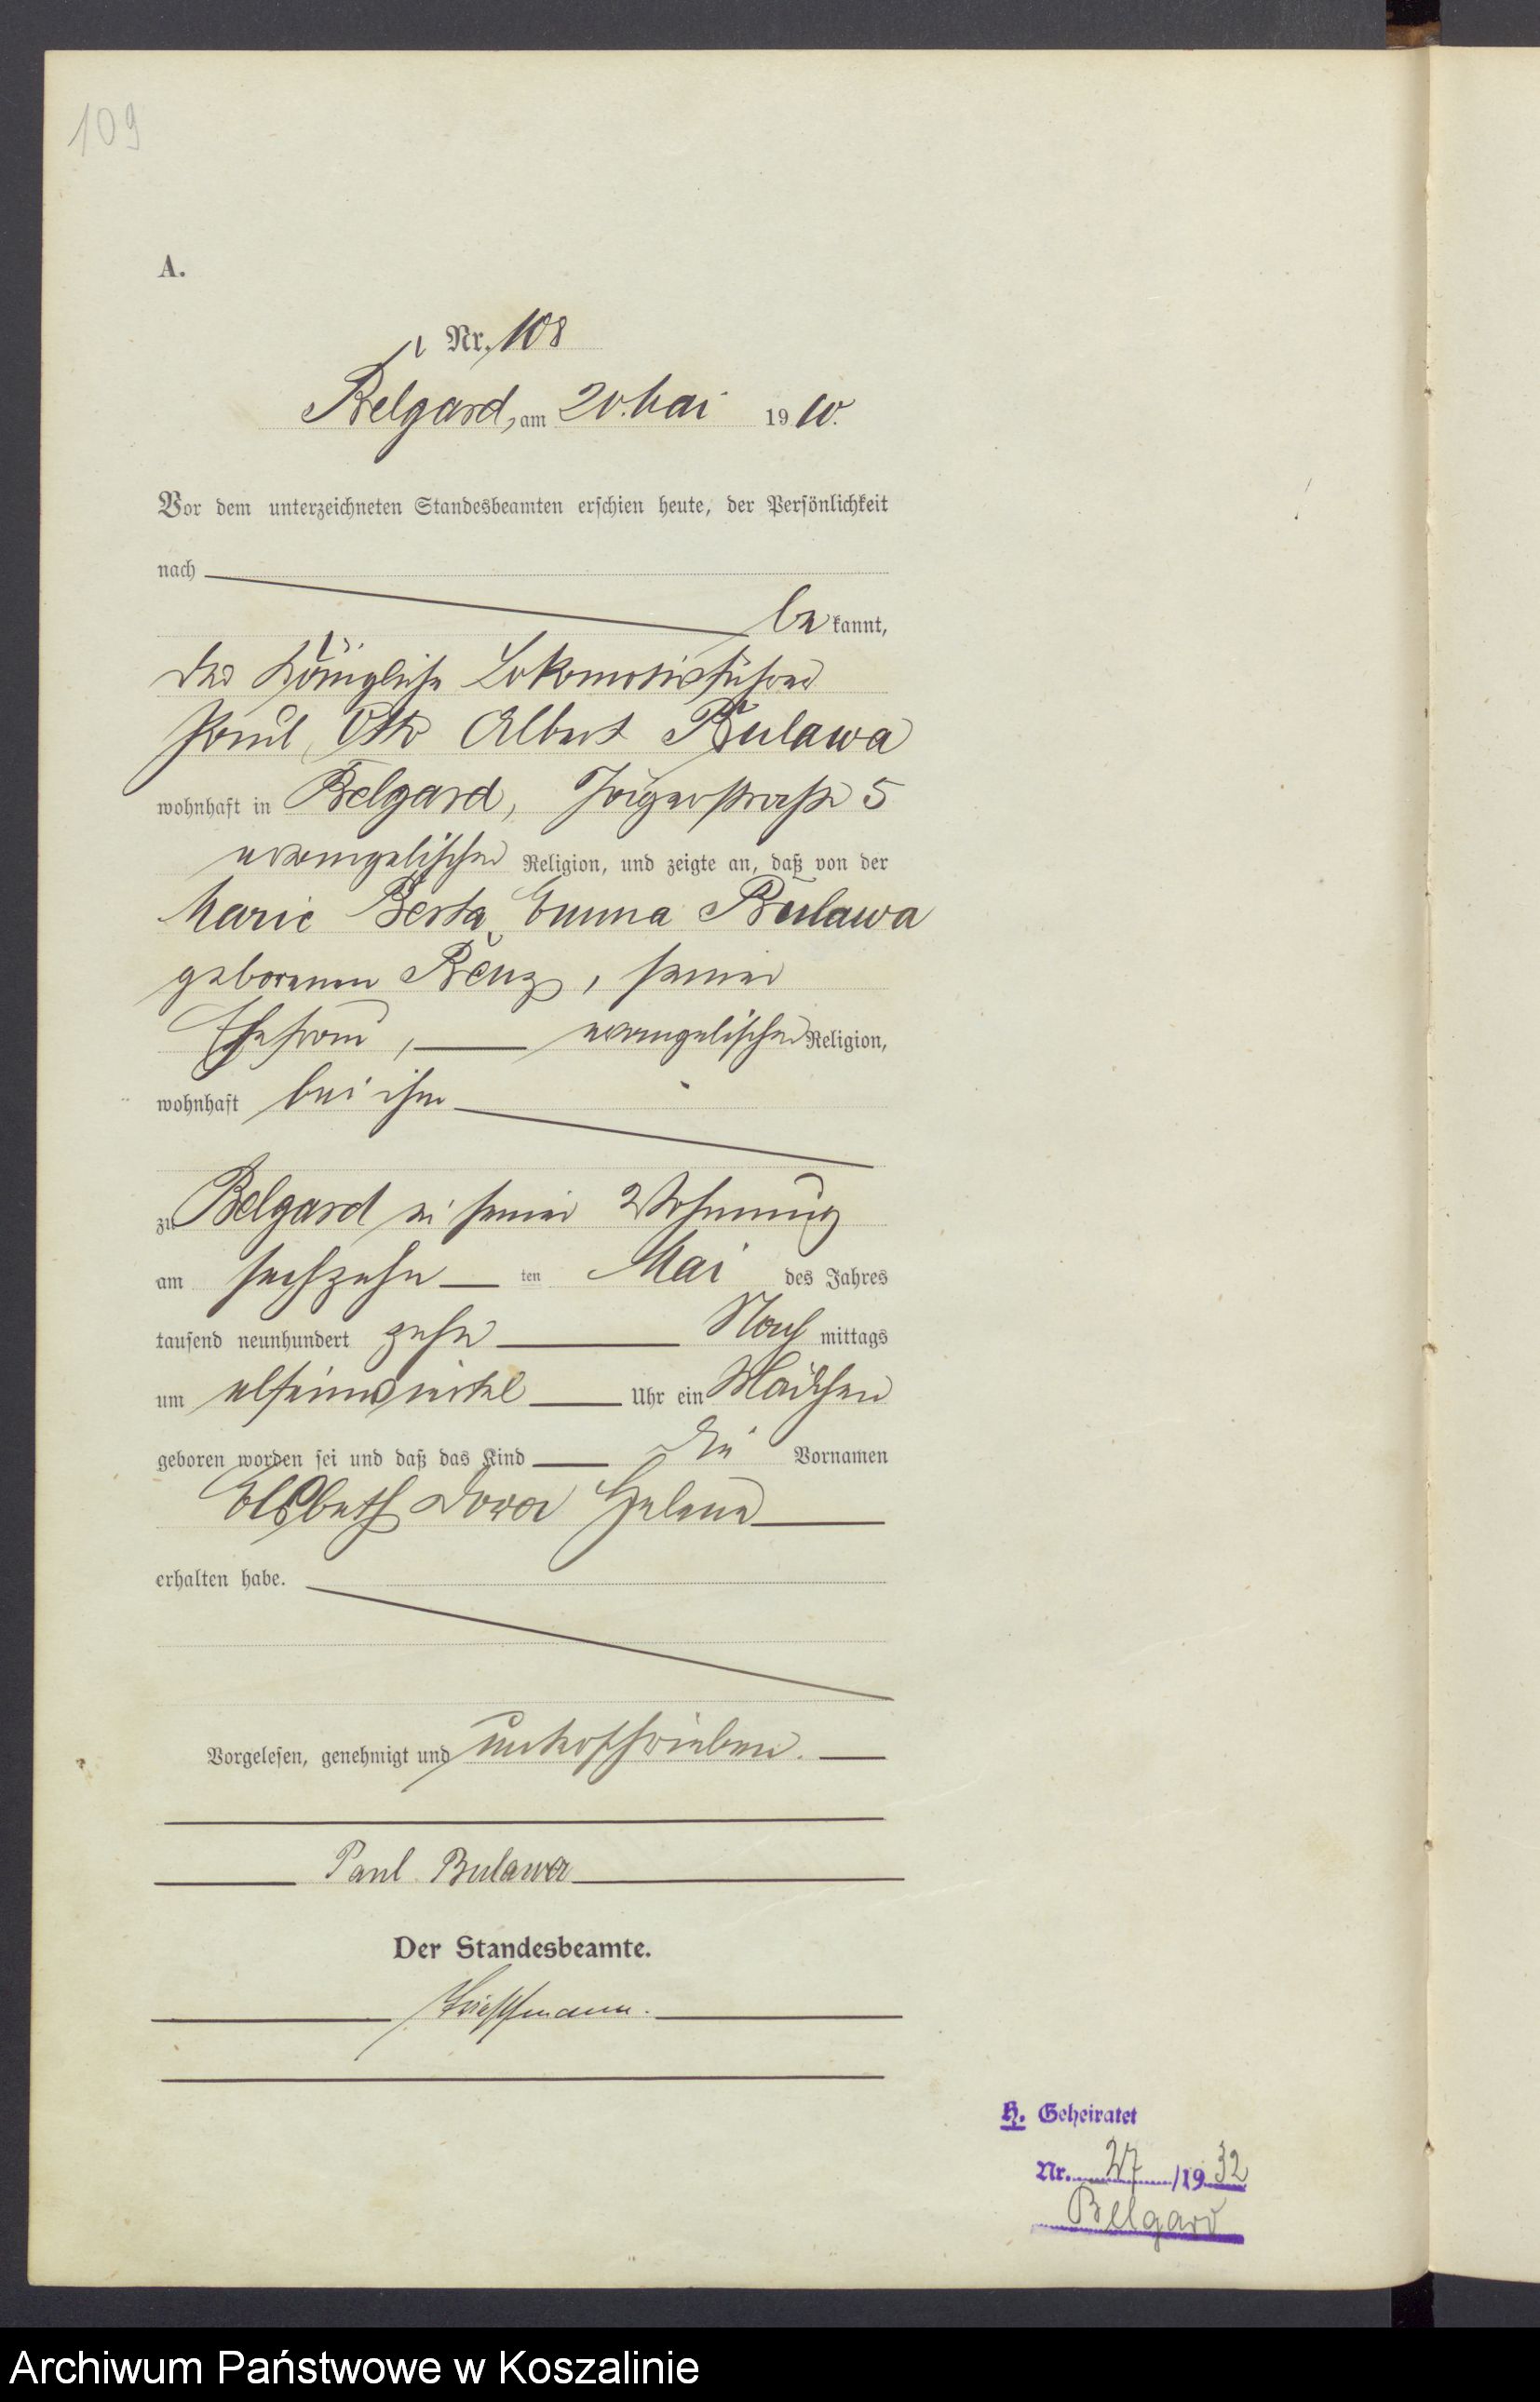 109
A.
Nr. 108
Belgard, am 20. Mai 1910.
Vor dem unterzeichneten Standesbeamten erschien heute, der Persönlichkeit
nach
bekannt,
der Königliche Lokomotivführer
Paul Otto Albert Bulawa
wohnhaft in Belgard, Jägerstraße 5
evangelischer Religion, und zeigte an, daß von der
Marie Berta Emma Bulawa
geborenen Benz, seiner
Ehefrau, evangelischer Religion,
wohnhaft bei ihm
zu Belgard in seiner Wohnung
am sechzehn ten Mai des Jahres
tausend neunhundert zehn Nach mittags
um elfeinviertel Uhr ein Mädchen
geboren worden sei und daß das Kind die Vornamen
Elsbeth Dora Helene
erhalten habe.
Vorgelesen, genehmigt und unterschrieben.
Paul Bulawa
Der Standesbeamte.
H. Geheiratet
Nr. 27 /1932
Belgard
Archiwum Państwowe w Koszalinie